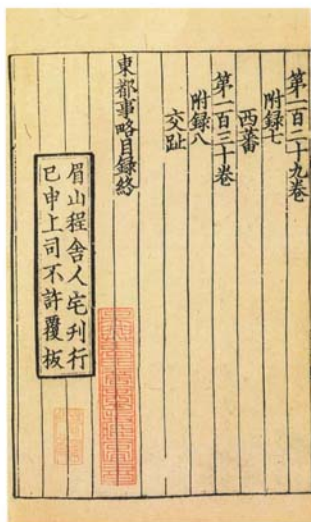 第一百二十九卷
附録七
西蕃
第一百三十卷
附録八
交趾
東都事略目録終
眉山程舎人宅刊行
已申上司不許覆板